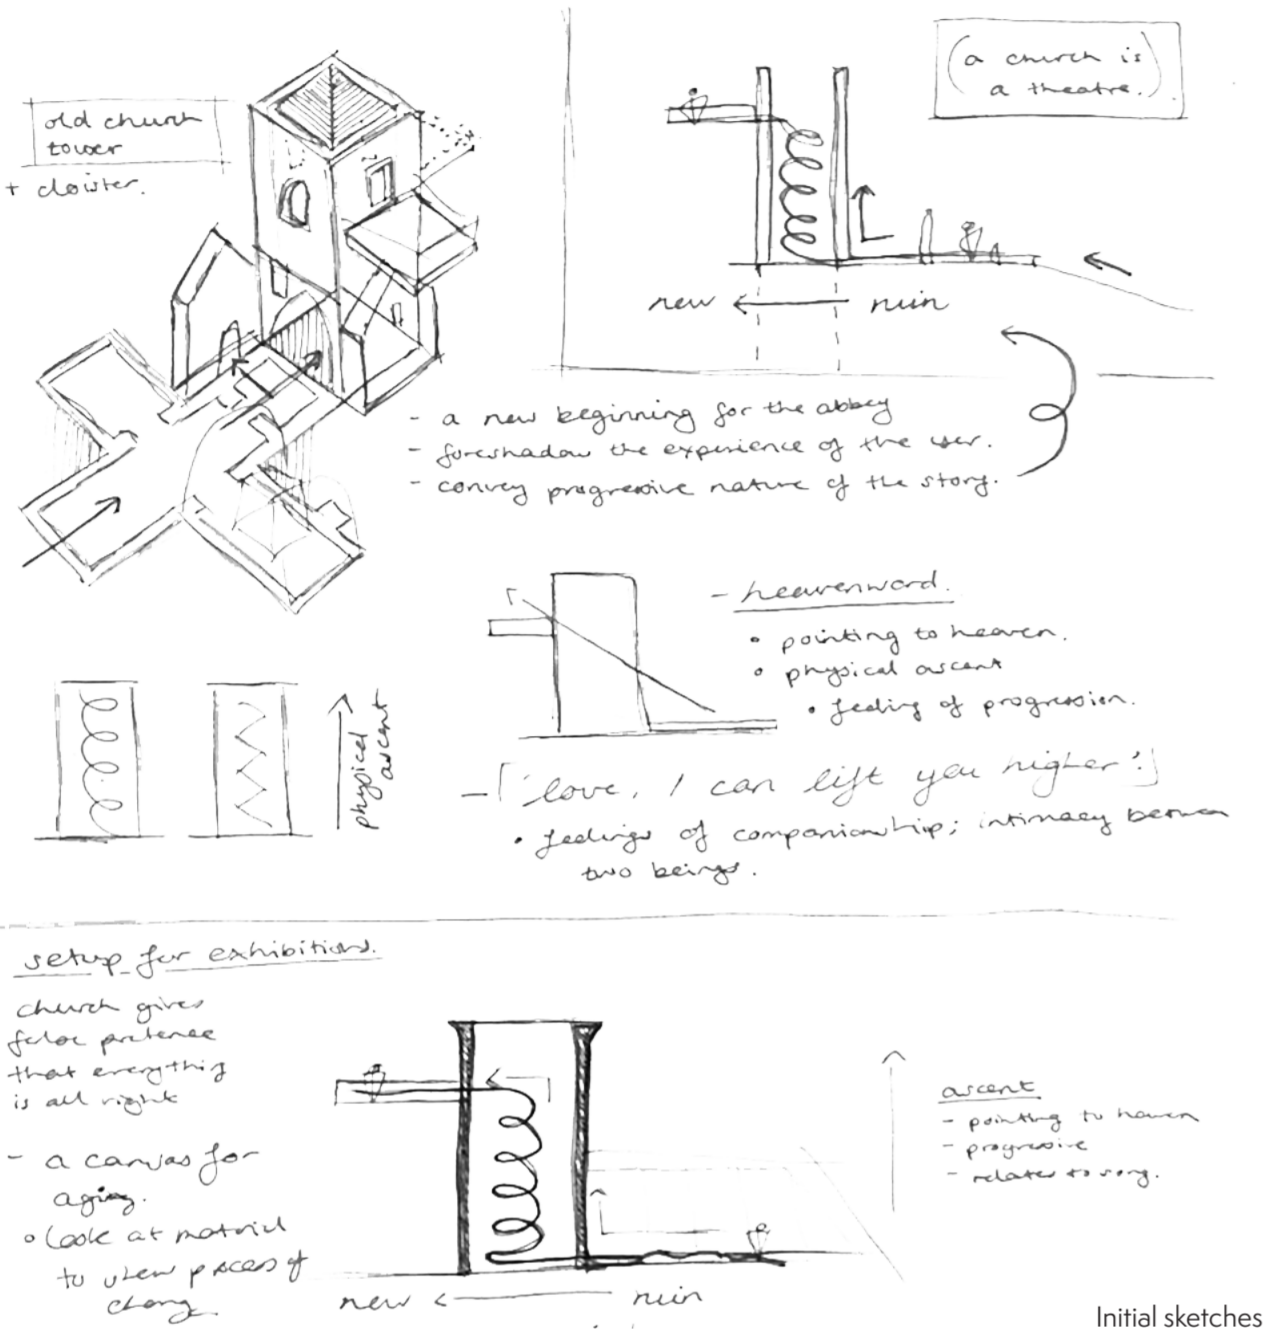 old church
tower
+ cloister.
(a church is
a theatre.)
new ← ruin
- a new beginning for the abbey
- foreshadow the experience of the user.
- convey progressive nature of the story.
- heavenward.
• pointing to heaven.
• physical ascent
• feeling of progression.
physical
ascent
- ['love, I can lift you higher'.]
• feelings of companionship; intimacy between
two beings.
setup for exhibitions.
church gives
false pretence
that everything
is all right
- a canvas for
aging.
• look at material
to view process of
change
new ← ruin
ascent
- pointing to heaven
- progressive
- relates to song.
Initial sketches